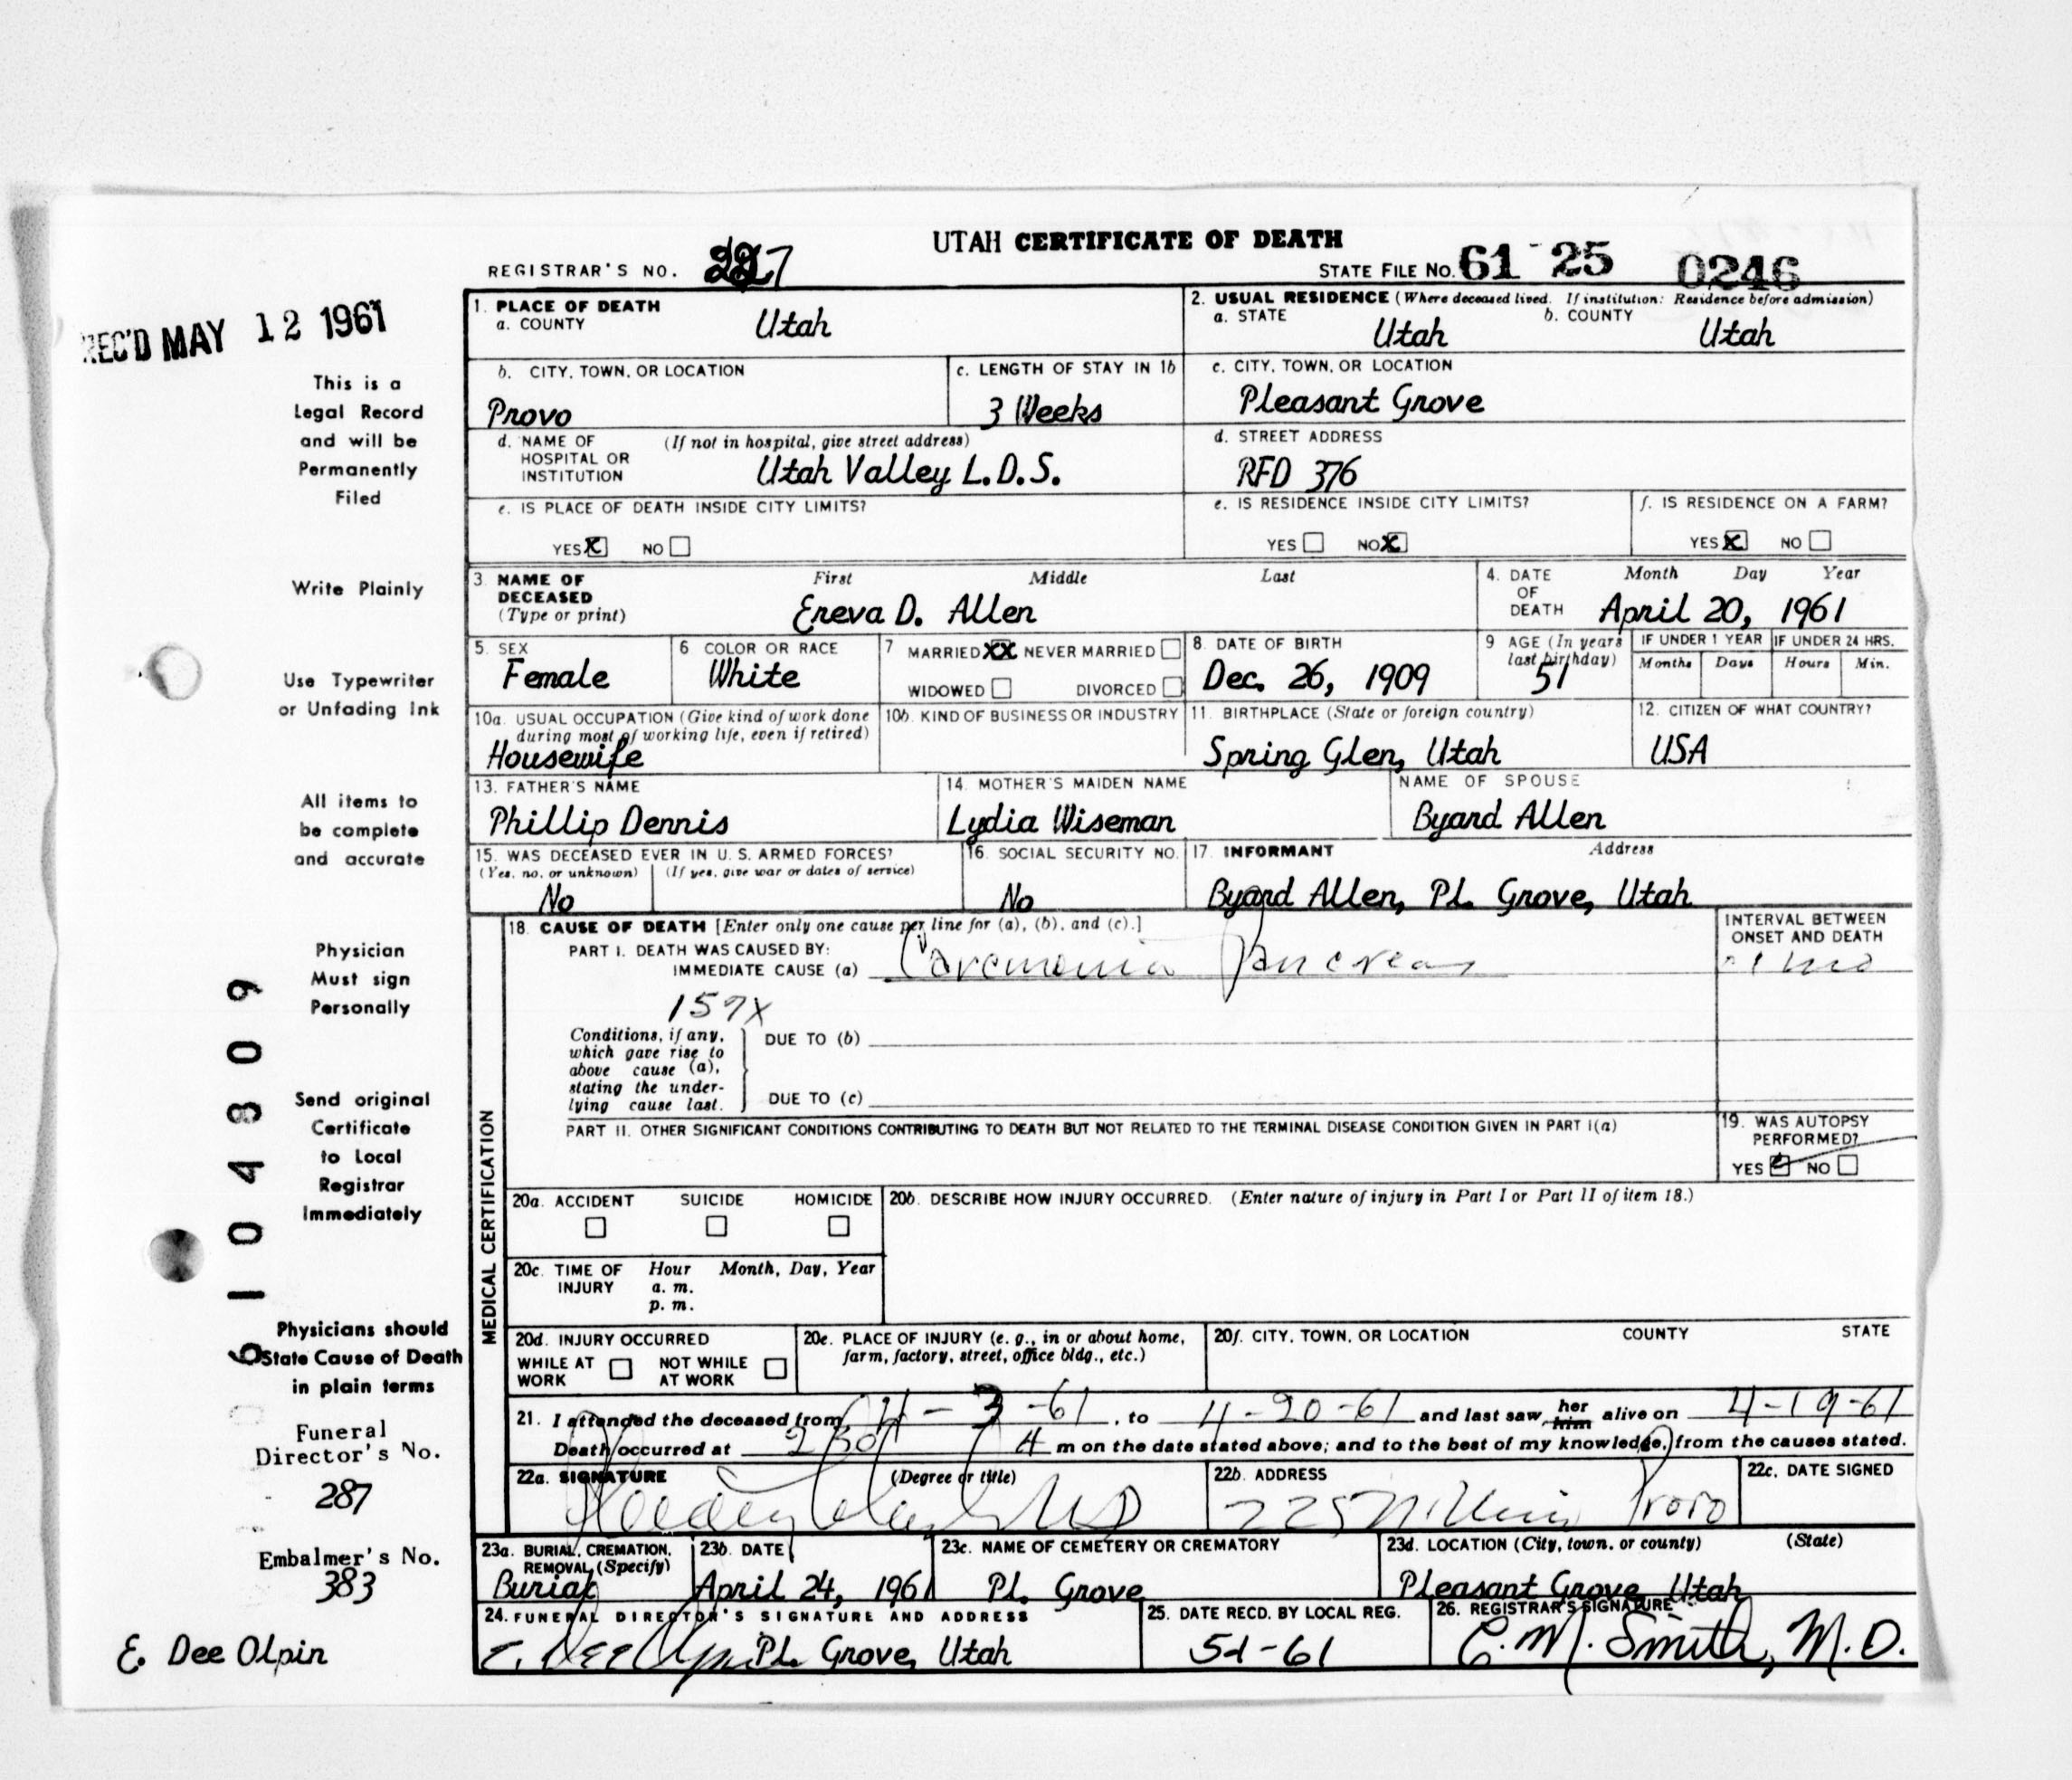 UTAH CERTIFICATE OF DEATH
REGISTRAR'S NO. 227
STATE FILE No. 61 - 25 0246
REC'D MAY 12 1961
This is a
Legal Record
and will be
Permanently
Filed
Write Plainly
Use Typewriter
or Unfading Ink
All items to
be complete
and accurate
Physician
Must sign
Personally
Send original
Certificate
to Local
Registrar
Immediately
Physicians should
State Cause of Death
in plain terms
Funeral
Director's No.
287
Embalmer's No.
383
E. Dee Olpin
6104309
1. PLACE OF DEATH
a. COUNTY Utah
2. USUAL RESIDENCE (Where deceased lived. If institution: Residence before admission)
a. STATE Utah b. COUNTY Utah
b. CITY, TOWN, OR LOCATION
Provo
c. LENGTH OF STAY IN 1b
3 Weeks
c. CITY, TOWN, OR LOCATION
Pleasant Grove
d. NAME OF HOSPITAL OR INSTITUTION (If not in hospital, give street address)
Utah Valley L.D.S.
d. STREET ADDRESS
RFD 376
e. IS PLACE OF DEATH INSIDE CITY LIMITS?
YES X NO
e. IS RESIDENCE INSIDE CITY LIMITS?
YES NO X
f. IS RESIDENCE ON A FARM?
YES X NO
3. NAME OF DECEASED (Type or print) First Middle Last
Ereva D. Allen
4. DATE OF DEATH Month Day Year
April 20, 1961
5. SEX
Female
6 COLOR OR RACE
White
7 MARRIED XX NEVER MARRIED
WIDOWED DIVORCED
8. DATE OF BIRTH
Dec. 26, 1909
9 AGE (In years last birthday)
51
IF UNDER 1 YEAR IF UNDER 24 HRS.
Months Days Hours Min.
10a. USUAL OCCUPATION (Give kind of work done during most of working life, even if retired)
Housewife
10b. KIND OF BUSINESS OR INDUSTRY
11. BIRTHPLACE (State or foreign country)
Spring Glen, Utah
12. CITIZEN OF WHAT COUNTRY?
USA
13. FATHER'S NAME
Phillip Dennis
14. MOTHER'S MAIDEN NAME
Lydia Wiseman
NAME OF SPOUSE
Byard Allen
15. WAS DECEASED EVER IN U. S. ARMED FORCES?
(Yes, no, or unknown) (If yes, give war or dates of service)
No
16. SOCIAL SECURITY NO.
No
17. INFORMANT Address
Byard Allen, Pl. Grove, Utah
MEDICAL CERTIFICATION
18. CAUSE OF DEATH [Enter only one cause per line for (a), (b), and (c).]
PART I. DEATH WAS CAUSED BY:
IMMEDIATE CAUSE (a) Carcinoma Pancreas
INTERVAL BETWEEN
ONSET AND DEATH
157X
Conditions, if any,
which gave rise to
above cause (a),
stating the under-
lying cause last.
DUE TO (b)
DUE TO (c)
PART II. OTHER SIGNIFICANT CONDITIONS CONTRIBUTING TO DEATH BUT NOT RELATED TO THE TERMINAL DISEASE CONDITION GIVEN IN PART I(a)
19. WAS AUTOPSY
PERFORMED?
YES NO
20a. ACCIDENT SUICIDE HOMICIDE
20b. DESCRIBE HOW INJURY OCCURRED. (Enter nature of injury in Part I or Part II of item 18.)
20c. TIME OF INJURY Hour Month, Day, Year
a. m.
p. m.
20d. INJURY OCCURRED
WHILE AT WORK NOT WHILE AT WORK
20e. PLACE OF INJURY (e. g., in or about home,
farm, factory, street, office bldg., etc.)
20f. CITY, TOWN, OR LOCATION COUNTY STATE
21. I attended the deceased from 4-3-61, to 4-20-61 and last saw her him alive on 4-19-61
Death occurred at 230 A m on the date stated above; and to the best of my knowledge, from the causes stated.
22a. SIGNATURE (Degree or title)
MD
22b. ADDRESS
Provo
22c. DATE SIGNED
23a. BURIAL, CREMATION, REMOVAL (Specify)
Burial
23b. DATE
April 24, 1961
23c. NAME OF CEMETERY OR CREMATORY
Pl. Grove
23d. LOCATION (City, town, or county) (State)
Pleasant Grove Utah
24. FUNERAL DIRECTOR'S SIGNATURE AND ADDRESS
E. Dee Olpin Pl. Grove, Utah
25. DATE RECD. BY LOCAL REG.
5-1-61
26. REGISTRAR'S SIGNATURE
C. M. Smith, M.D.